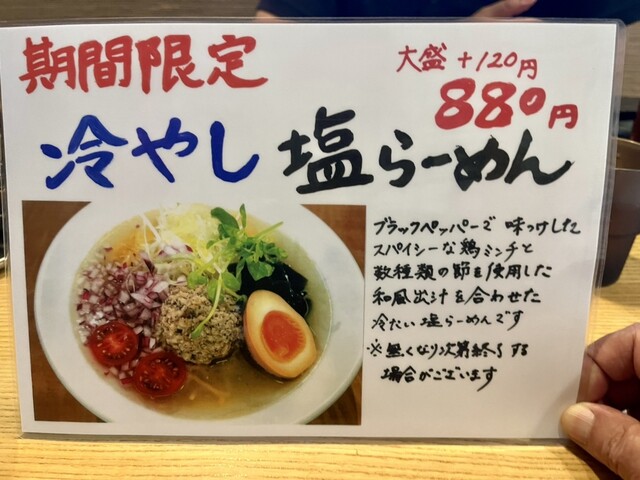 期間限定
大盛+120円
880円
冷やし 塩らーめん
ブラックペッパーで 味つけした
スパイシーな鶏ミンチと
数種類の節を使用した
和風出汁を合わせた
冷たい塩らーめんです
※無くなり次第終了する
場合がございます